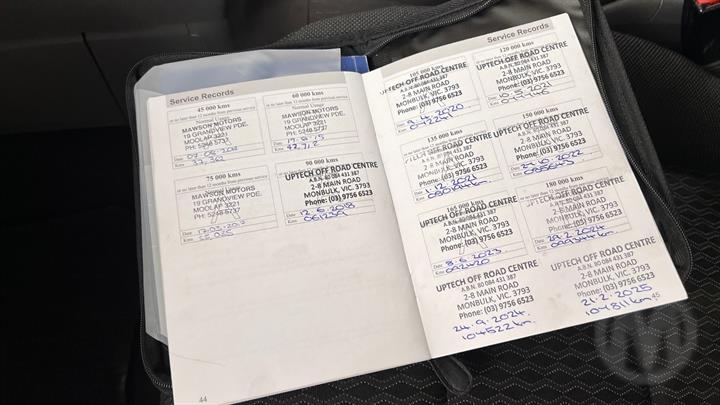 Service Records
45 000 kms
or no later than 12 months from previous service
Normal Usage
MAWSON MOTORS
19 GRANDVIEW PDE.
MOOLAP 3221
PH: 5248 5737
Date
Kms
60 000 kms
or no later than 12 months from previous service
Normal Usage
MAWSON MOTORS
19 GRANDVIEW PDE.
MOOLAP 3221
PH: 5248 5737
Date
Kms
75 000 kms
or no later than 12 months from previous service
MAWSON MOTORS
19 GRANDVIEW PDE.
MOOLAP 3221
PH: 5248 5737
Date
Kms
90 000 kms
UPTECH OFF ROAD CENTRE
A.B.N. 80 084 431 387
2-8 MAIN ROAD
MONBULK, VIC. 3793
Phone: (03) 9756 6523
Date 12.6.2018
Kms
44
Service Records
105 000 kms
UPTECH OFF ROAD CENTRE
A.B.N. 80 084 431 387
2-8 MAIN ROAD
MONBULK, VIC. 3793
Phone: (03) 9756 6523
Date 9.4.2020
Kms
120 000 kms
UPTECH OFF ROAD CENTRE
A.B.N. 80 084 431 387
2-8 MAIN ROAD
MONBULK, VIC. 3793
Phone: (03) 9756 6523
Date
Kms
135 000 kms
UPTECH OFF ROAD CENTRE
A.B.N. 80 084 431 387
2-8 MAIN ROAD
MONBULK, VIC. 3793
Phone: (03) 9756 6523
Date 1.12.2021
Kms
150 000 kms
UPTECH OFF ROAD CENTRE
A.B.N. 80 084 431 387
2-8 MAIN ROAD
MONBULK, VIC. 3793
Phone: (03) 9756 6523
Date
Kms
165 000 kms
UPTECH OFF ROAD CENTRE
A.B.N. 80 084 431 387
2-8 MAIN ROAD
MONBULK, VIC. 3793
Phone: (03) 9756 6523
Date 8.6.2023
Kms 092420
180 000 kms
UPTECH OFF ROAD CENTRE
A.B.N. 80 084 431 387
2-8 MAIN ROAD
MONBULK, VIC. 3793
Phone: (03) 9756 6523
Date 29.2.2024
Kms
UPTECH OFF ROAD CENTRE
A.B.N. 80 084 431 387
2-8 MAIN ROAD
MONBULK, VIC. 3793
Phone: (03) 9756 6523
24.9.2024
104522km
UPTECH OFF ROAD CENTRE
A.B.N. 80 084 431 387
2-8 MAIN ROAD
MONBULK, VIC. 3793
Phone: (03) 9756 6523
21.2.2025
104811km
45